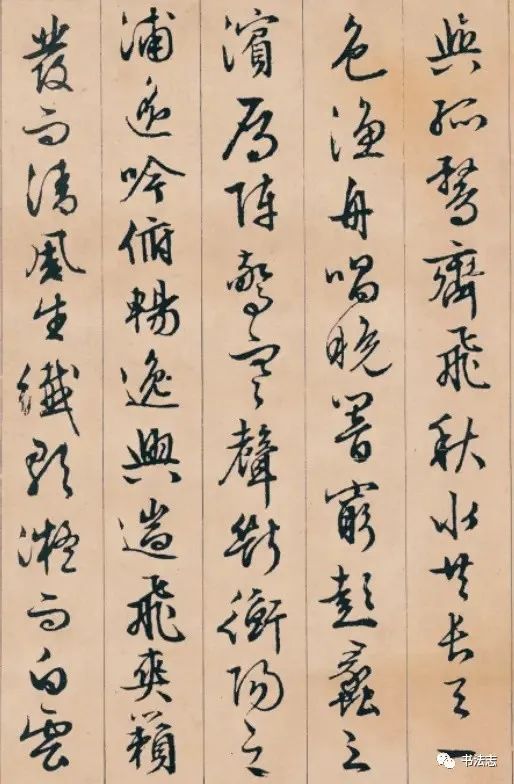 與孤鶩齊飛秋水共長天一
色漁舟唱晚響窮彭蠡之
濱鴈陣驚寒聲斷衡陽之
浦遙吟俯暢逸興遄飛爽籟
發而清風生纖歌凝而白雲
书法志